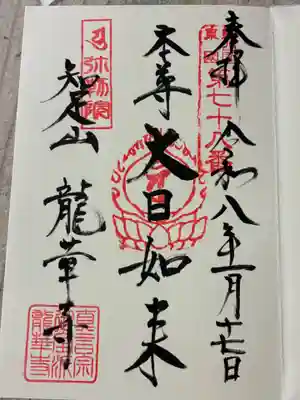 奉拝 令和八年一月十七日
第七十八番
本尊 大日如来
弥勒院
知足山 龍華寺
真言宗
御室派
龍華寺